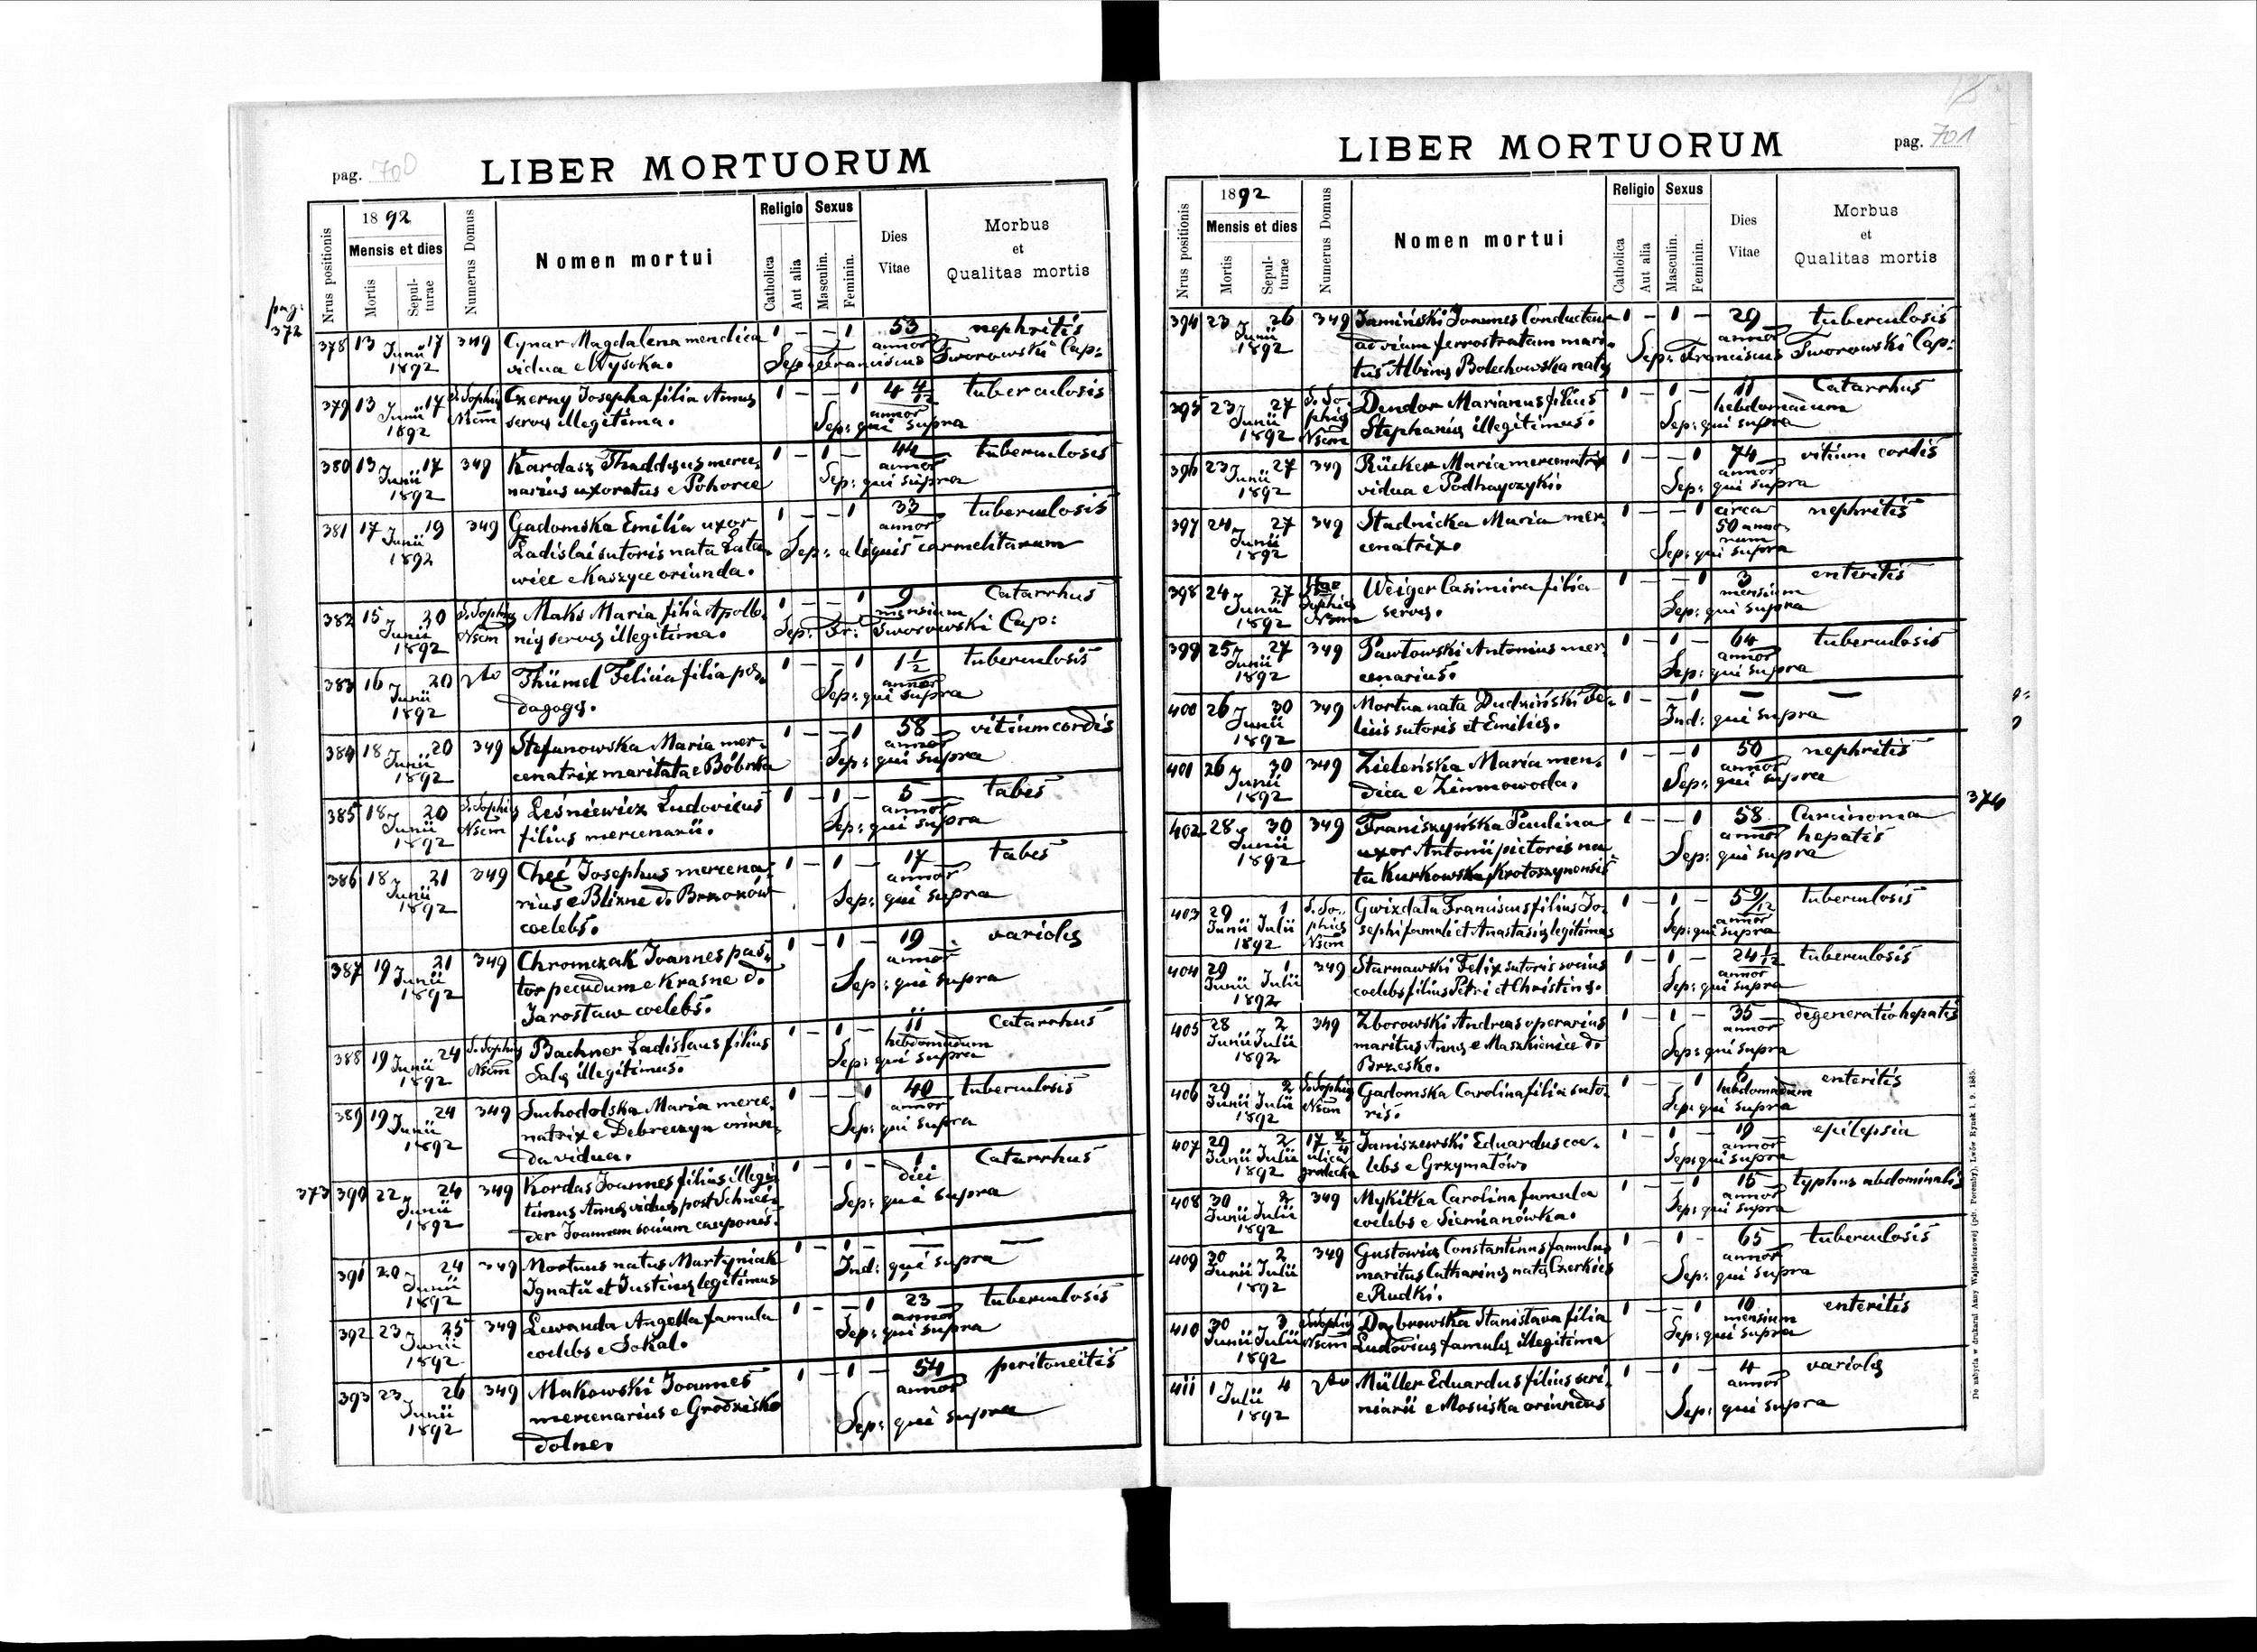 pag. 700
LIBER MORTUORUM
Nrus positionis
1892
Mensis et dies
Mortis
Sepulturae
Numerus Domus
Nomen mortui
Religio
Catholica
Aut alia
Sexus
Masculin.
Feminin.
Dies
Vitae
Morbus
et
Qualitas mortis
pag:
372
378 13 Junii 17 349 Cynar Magdalena mendica 1 – – 1 53 nephritis
1892 vidua e Wysoka. annor
Sep: Franciscus Tworowski Cap:
379 13 Junii 17 S. Sophię Czerny Josepha filia Annę 1 – – 1 4 4/12 tuberculosis
1892 Nsem servę illegitima. annor
Sep: qui supra
380 13 Junii 17 349 Kardasz Thaddęus merce- 1 – 1 – 44 tuberculosis
1892 narius uxoratus e Pohorce annor
Sep: qui supra
381 17 Junii 19 349 Gadomska Emilia uxor 1 – – 1 33 tuberculosis
1892 Ladislai sutoris nata annor
e Kaszyce oriunda. Sep: carmelitarum
382 15 Junii 20 S. Sophię Maks Maria filia Apollo- 1 – – 1 9 Catarrhus
1892 Nsem nię servę illegitima. mensium
Sep: Fr: Tworowski Cap:
383 16 Junii 20 dto Thümel Felicia filia pę- 1 – – 1 1 1/2 tuberculosis
1892 dagogę. annor
Sep: qui supra
384 18 Junii 20 349 Stefanowska Maria mer- 1 – – 1 58 vitium cordis
1892 cenatrix maritata e Bóbrka annor
Sep: qui supra
385 18 Junii 20 S. Sophię Leśniewicz Ludovicus 1 – 1 – 5 tabes
1892 Nsem filius mercenarii. annor
Sep: qui supra
386 18 Junii 21 349 Chęć Josephus mercena- 1 – 1 – 17 tabes
1892 rius e Blizne d. Brzozów annor
coelebs. Sep: qui supra
387 19 Junii 21 349 Chromczak Joannes pas- 1 – 1 – 19 variolę
1892 tor pecudum e Krasne d. annor
Jarosław coelebs. Sep: qui supra
388 19 Junii 24 S. Sophię Bachner Ladislaus filius 1 – 1 – 11 Catarrhus
1892 Nsem Salę illegitimus. hebdomadum
Sep: qui supra
389 19 Junii 24 349 Suchodolska Maria merce- 1 – – 1 40 tuberculosis
1892 natrix e Debreczyn oriun- annor
da vidua. Sep: qui supra
373
390 22 Junii 24 349 Kordas Joannes filius illegi- 1 – 1 – 1 Catarrhus
1892 timus Annę viduę post Schnei- diei
der Joannem socium cauponis. Sep: qui supra
391 20 Junii 24 349 Mortuus natus Martyniak 1 – 1 – – –
1892 Ignatii et Justinę legitimus Ind: qui supra
392 23 Junii 25 349 Lewanda Angella famula 1 – – 1 23 tuberculosis
1892 coelebs e Sokal. annor
Sep: qui supra
393 23 Junii 26 349 Makowski Joannes 1 – 1 – 54 peritoneitis
1892 mercenarius e Grodzisko annor
dolne. Sep: qui supra
pag. 701
LIBER MORTUORUM
Nrus positionis
1892
Mensis et dies
Mortis
Sepulturae
Numerus Domus
Nomen mortui
Religio
Catholica
Aut alia
Sexus
Masculin.
Feminin.
Dies
Vitae
Morbus
et
Qualitas mortis
394 23 Junii 26 349 Jamiński Joannes Conducteur 1 – 1 – 29 tuberculosis
1892 ad viam ferrostratam mari- annor
tus Albinę Bolechowska natę Sep: Franciscus Tworowski Cap:
395 23 Junii 27 S. So- Dendor Marianus filius 1 – 1 – 11 Catarrhus
1892 phię Nsem Stephanię illegitimus. hebdomadum
Sep: qui supra
396 23 Junii 27 349 Rücker Maria mercenatrix 1 – – 1 74 vitium cordis
1892 vidua e Podhayczyki. annor
Sep: qui supra
397 24 Junii 27 349 Stadnicka Maria mer- 1 – – 1 circa nephritis
1892 cenatrix. 50 anno-
rum
Sep: qui supra
398 24 Junii 27 Stae Sophię Weiger Casimira filia 1 – – 1 3 enteritis
1892 Nsem servę. mensium
Sep: qui supra
399 25 Junii 27 349 Pawłowski Antonius mer- 1 – 1 – 64 tuberculosis
1892 cenarius. annor
Sep: qui supra
400 26 Junii 30 349 Mortua nata Dudziński 1 – – 1 – –
1892 sutoris et Emilię. Ind: qui supra
401 26 Junii 30 349 Zieleńska Maria men- 1 – – 1 50 nephritis
1892 dica e Zimnowoda. annor
Sep: qui supra
374
402 28 Junii 30 349 Franiszyńska Paulina 1 – – 1 58 Carcinoma
1892 uxor Antonii pictoris na- annor hepatis
ta Kurkowska, Krotoszynensis Sep: qui supra
403 29 Junii 1 Julii S. So- Gwizdała Franciscus filius Jo- 1 – 1 – 5 9/12 tuberculosis
1892 phię Nsem sephi famuli et Anastasię legitimus annor
Sep: qui supra
404 29 Junii 1 Julii 349 Starnawski Felix sutoris socius 1 – 1 – 24 1/12 tuberculosis
1892 coelebs filius Petri et Christinę. annor
Sep: qui supra
405 28 Junii 2 Julii 349 Zborowski Andreas operarius 1 – 1 – 35 degeneratio hepatis
1892 maritus Annę e Maszkienice d. annor
Brzesko. Sep: qui supra
406 29 Junii 2 Julii S. Sophię Gadomska Carolina filia suto- 1 – – 1 6 enteritis
1892 Nsem ris. hebdomadum
Sep: qui supra
407 29 Junii 2 Julii 17 2/4 Janiszewski Eduardus coe- 1 – 1 – 19 epilepsia
1892 ulica grodecka lebs e Grzymałów. annor
Sep: qui supra
408 30 Junii 2 Julii 349 Mykitka Carolina famula 1 – – 1 15 typhus abdominalis
1892 coelebs e Siemianówka. annor
Sep: qui supra
409 30 Junii 2 Julii 349 Gustowicz Constantinus famulus 1 – 1 – 65 tuberculosis
1892 maritus Catharinę natę Czerkies annor
e Rudki. Sep: qui supra
410 30 Junii 3 Julii S. Sophię Dąbrowska Stanislava filia 1 – – 1 10 enteritis
1892 Nsem Ludovicę famulę illegitima mensium
Sep: qui supra
411 1 Julii 4 dto Müller Eduardus filius scri- 1 – 1 – 4 variolę
1892 niarii e Mosiska oriundus annor
Sep: qui supra
Do nabycia w drukarni Anny Wajdowiczowej (pdr. Poremby), Lwów Rynek l. 9. 1885.